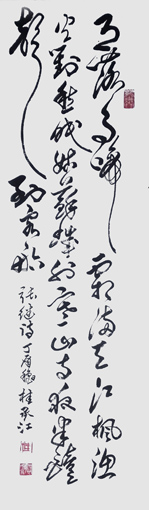 月落烏啼霜滿天江楓漁
火對愁眠姑蘇城外寒山寺夜半鐘
聲到客船
張継詩丁酉穐桂江